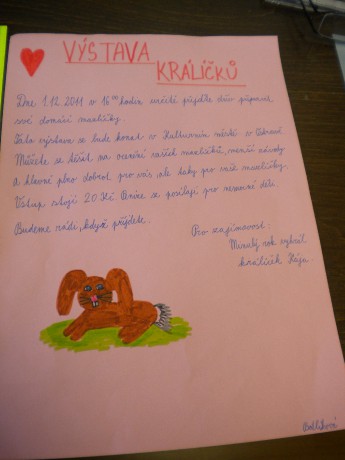 VÝSTAVA
KRÁLÍČKŮ
Dne 1.12.2011 v 16⁰⁰ hodin určitě přijďte
své domácí mazlíčky.
Tato výstava se bude konat v Kulturním městě v Ostrově
Můžete se těšit na ocenění vašich mazlíčků, menší závody
a hlavně plno dobrot pro vás ale taky pro vaše mazlíčky.
Vstup stojí 20 Kč. Peníze se posílají pro nemocné děti
Budeme rádi, když přijdete.
Pro zajímavost:
Minulý rok vyhrál
králíček